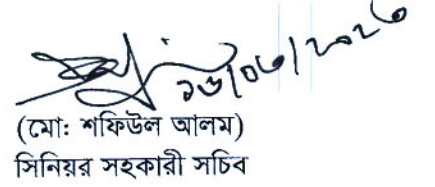 ১৬/০৬/২০২৬
(মো: শফিউল আলম)
সিনিয়র সহকারী সচিব